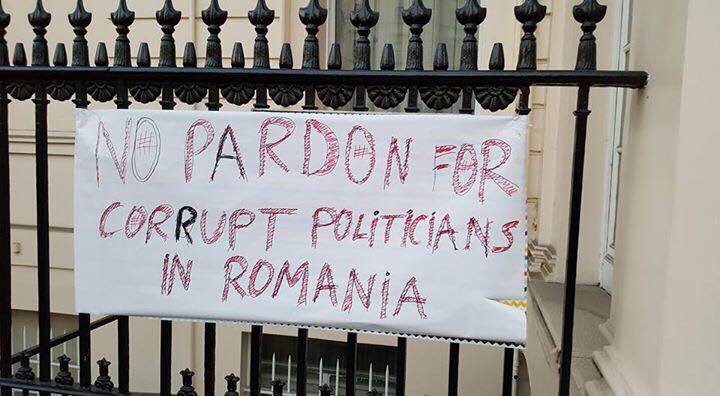 NO PARDON FOR
CORRUPT POLITICIANS
IN ROMANIA